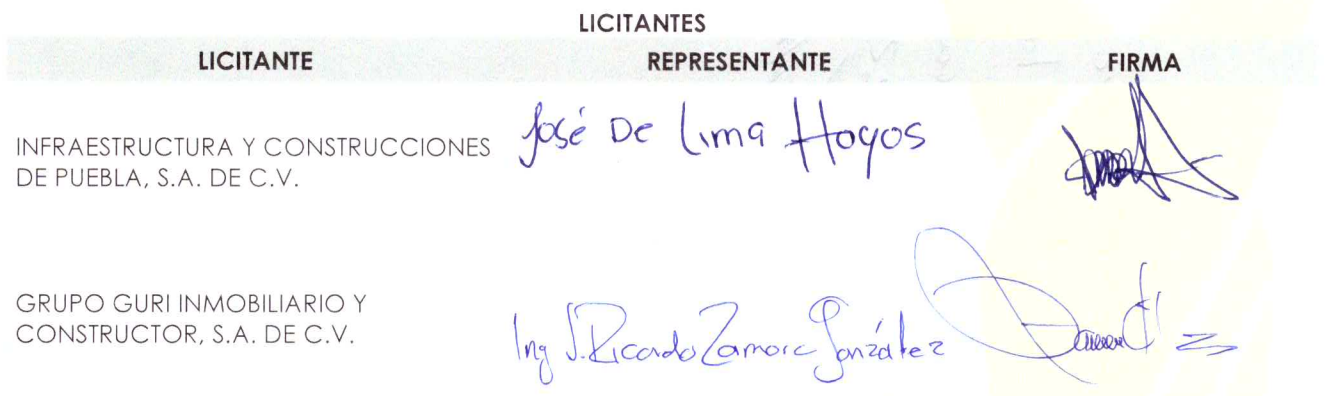 LICITANTES
LICITANTE REPRESENTANTE FIRMA
INFRAESTRUCTURA Y CONSTRUCCIONES
DE PUEBLA, S.A. DE C.V.
José De Lima Hoyos
GRUPO GURI INMOBILIARIO Y
CONSTRUCTOR, S.A. DE C.V.
Ing J. Ricardo Zamora González